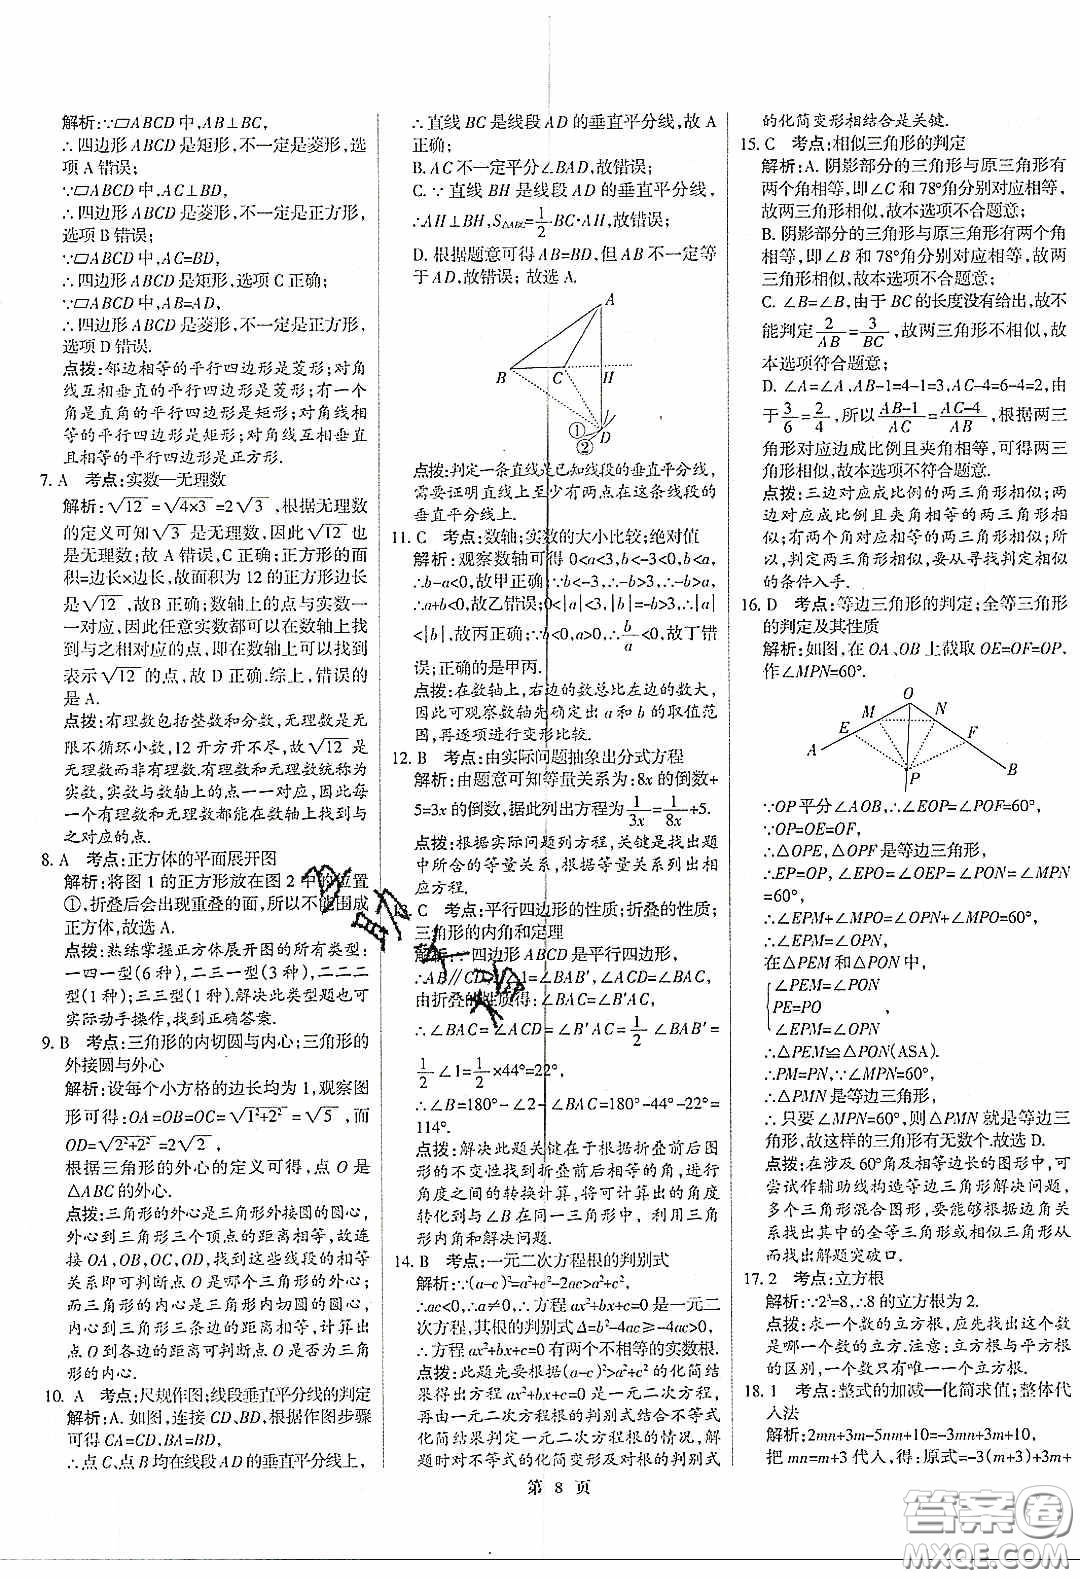 解析:∵▱ABCD中,AB⊥BC,
∴四边形ABCD是矩形,不一定是菱形,选
项A错误;
∵▱ABCD中,AC⊥BD,
∴四边形ABCD是菱形,不一定是正方形,
选项B错误;
∵▱ABCD中,AC=BD,
∴四边形ABCD是矩形,选项C正确;
∵▱ABCD中,AB=AD,
∴四边形ABCD是菱形,不一定是正方形,
选项D错误.
点拨:邻边相等的平行四边形是菱形;对角
线互相垂直的平行四边形是菱形;有一个
角是直角的平行四边形是矩形;对角线相
等的平行四边形是矩形;对角线互相垂直
且相等的平行四边形是正方形.
7. A 考点:实数—无理数
解析:√12=√4×3=2√3,根据无理数
的定义可知√3是无理数,因此√12也
是无理数;故A错误,C正确;正方形的面
积=边长×边长,故面积为12的正方形边长
是√12,故B正确;数轴上的点与实数一
一对应,因此任意实数都可以在数轴上找
到与之相对应的点,即在数轴上可以找到
表示√12的点,故D正确.综上,错误的
是A.
点拨:有理数包括整数和分数,无理数是无
限不循环小数,12开方开不尽,故√12是
无理数而非有理数.有理数和无理数统称为
实数,实数与数轴上的点一一对应,因此
每一个有理数和无理数都能在数轴上找到与
之对应的点.
8. A 考点:正方体的平面展开图
解析:将图1的正方形放在图2中的位置
①,折叠后会出现重叠的面,所以不能围成
正方体,故选A.
点拨:熟练掌握正方体展开图的所有类型:
一四一型(6种),二三一型(3种),二二二
型(1种);三三型(1种).解决此类型题也可
实际动手操作,找到正确答案.
9. B 考点:三角形的内切圆与内心;三角形的
外接圆与外心
解析:设每个小方格的边长均为1,观察图
形可得:OA=OB=OC=√1²+2²=√5,而
OD=√2²+2²=2√2,
根据三角形的外心的定义可得,点O是
△ABC的外心.
点拨:三角形的外心是三角形外接圆的圆心,
外心到三角形三个顶点的距离相等,故连
接OA,OB,OC,OD,找到这四边的相等
关系即可判断点O是哪个三角形的外心;
而三角形的内心是三角形内切圆的圆心,
内心到三角形三条边的距离相等,计算出
点到各边的距离可判断点O是否为三角
形的内心.
10. A 考点:尺规作图;线段垂直平分线的判定
解析:A.如图,连接CD,BD,根据作图步骤
可得CA=CD,BA=BD,
∴点C、点B均在线段AD的垂直平分线上,
∴直线BC是线段AD的垂直平分线,故A
正确;
B. AC不一定平分∠BAD,故错误;
C. ∵直线BH是线段AD的垂直平分线,
∴AH⊥BH,S△ABC=1/2·BC·AH,故错误;
D.根据题意可得AB=BD,但AB不一定等
于AD,故错误;故选A.
A
B C H
① D
②
点拨:判定一条直线是已知线段的垂直平分线,
需要证明直线上至少有两点在这条线段的
垂直平分线上.
11. C 考点:数轴;实数的大小比较;绝对值
解析:观察数轴可得0<a<3,b<-3<0,b<a,
∴b-a<0,故甲正确;∵b<-3,∴-b>3,∴-b>a,
∴a+b<0,故乙错误;0<|a|<3,|b|=-b>3,|a|
<|b|,故丙正确;∵b<0,a>0,∴b/a<0,故丁错
误;正确的是甲丙.
点拨:在数轴上,右边的数总比左边的数大,
因此可观察数轴先确定出a和b的取值范
围,再逐项进行变形比较.
12. B 考点:由实际问题抽象出分式方程
解析:由题意可知等量关系为:8x的倒数+
5=3x的倒数,据此列出方程为1/3x=1/8x+5.
点拨:根据实际问题列方程,关键是找出题
中所含的等量关系,根据等量关系列出相
应方程.
13. C 考点:平行四边形的性质;折叠的性质;
三角形的内角和定理
解析:∵四边形ABCD是平行四边形,
∴AB∥CD,∴∠1=∠BAB′,∠ACD=∠BAC,
由折叠的性质得:∠BAC=∠B′AC,
∴∠BAC=∠ACD=∠B′AC=1/2∠BAB′=
1/2∠1=1/2×44°=22°,
∴∠B=180°-∠2-∠BAC=180°-44°-22°=
114°.
点拨:解决此题关键在于根据折叠前后图
形的不变性找到折叠前后相等的角,进行
角度之间的转换计算,将可以求出的角度
转化到与∠B在同一三角形中,利用三角
形内角和解决问题.
14. B 考点:一元二次方程根的判别式
解析:∵(a-c)²=a²+c²-2ac>a²+c²,
∴ac<0,∴a≠0,∴方程ax²+bx+c=0是一元二
次方程,其根的判别式Δ=b²-4ac≥-4ac>0,
∴方程ax²+bx+c=0有两个不相等的实数根.
点拨:此题先要根据(a-c)²>a²+c²的化简
结果得出方程ax²+bx+c=0是一元二次方程,
再由一元二次方程根的判别式结合不等式
化简结果判定一元二次方程根的情况,解
题时对不等式的化简变形及对根的判别式
的化简变形相结合是关键.
15. C 考点:相似三角形的判定
解析:A.阴影部分的三角形与原三角形有
两个角相等,即∠C和78°角分别对应相等,
故两三角形相似,故本选项不合题意;
B.阴影部分的三角形与原三角形有两个角
相等,即∠B和78°角分别对应相等,故两
三角形相似,故本选项不合题意;
C. ∠B=∠B,由于BC的长度没有给出,故不
能判定2/AB=3/BC,故两三角形不相似,故
本选项符合题意;
D. ∠A=∠A,AB-1=4-1=3,AC-4=6-4=2,由
于3/6=2/4,所以AB-1/AC=AC-4/AB,根据两三
角形对应边成比例且夹角相等,可得两三
角形相似,故本选项不符合题意.
点拨:三边对应成比例的两三角形相似;两
边对应成比例且夹角相等的两三角形相
似;有两个角对应相等的两三角形相似;所
以,判定两三角形相似,要从寻找判定相似
的条件入手.
16. D 考点:等边三角形的判定;全等三角形
的判定及其性质
解析:如图,在OA、OB上截取OE=OF=OP,
作∠MPN=60°.
O
M N
E F
A P B
∵OP平分∠AOB,∴∠EOP=∠POF=60°,
∵OP=OE=OF,
∴△OPE,△OPF是等边三角形,
∴EP=OP,∠EPO=∠OEP=∠PON=∠MPN
=60°,
∴∠EPM+∠MPO=∠MPO+∠OPN=60°,
∴∠EPM=∠OPN,
在△PEM和△PON中,
∠PEM=∠PON
PE=PO
∠EPM=∠OPN
∴△PEM≌△PON(ASA).
∴PM=PN,∵∠MPN=60°,
∴△PMN是等边三角形,
∴只要∠MPN=60°,则△PMN就是等边三
角形,故这样的三角形有无数个.故选D.
点拨:在涉及60°角及相等边长的图形中,可
尝试作辅助线构造等边三角形解决问题,
多个三角形混合图形,要能够根据边角关
系找出其中的全等三角形或相似三角形从
而找出解题突破口.
17. 2 考点:立方根
解析:∵2³=8,∴8的立方根为2.
点拨:求一个数的立方根,应先找出这个数
是哪一个数的立方.注意:立方根与平方根
的区别,一个数只有唯一一个立方根.
18. 1 考点:整式的加减—化简求值;整体代
入法
解析:2mn+3m-5nm+10=-3mn+3m+10,
把mn=m+3代入,得:原式=-3(m+3)+3m+
第 8 页
答案圈
MXQE.COM